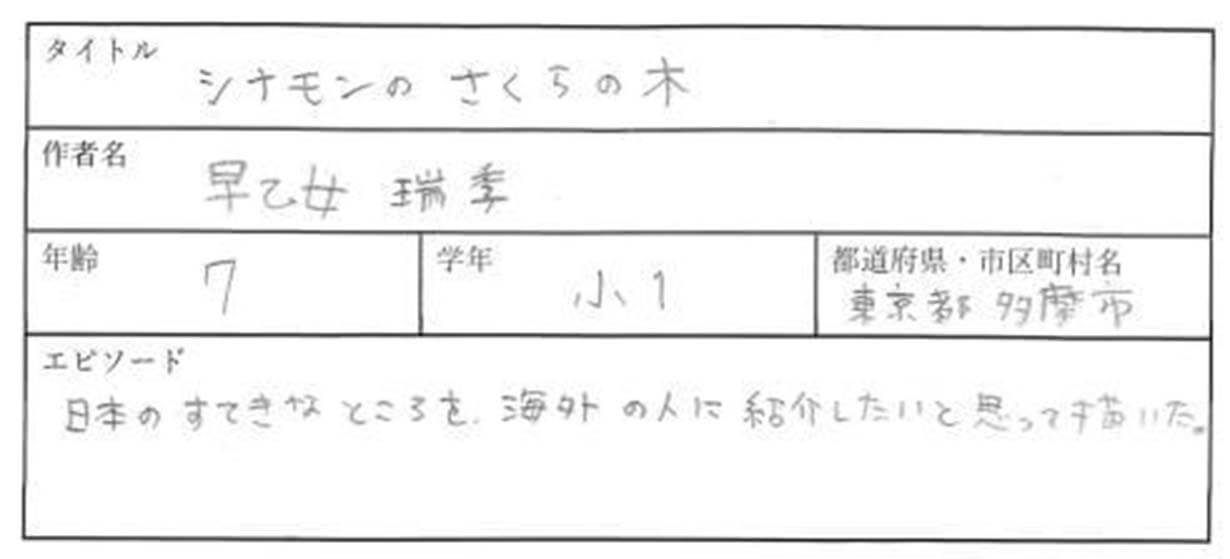 タイトル
シナモンの さくらの木
作者名
早乙女 瑞季
年齢
7
学年
小1
都道府県・市区町村名
東京都 多摩市
エピソード
日本のすてきなところを、海外の人に紹介したいと思って描いた。